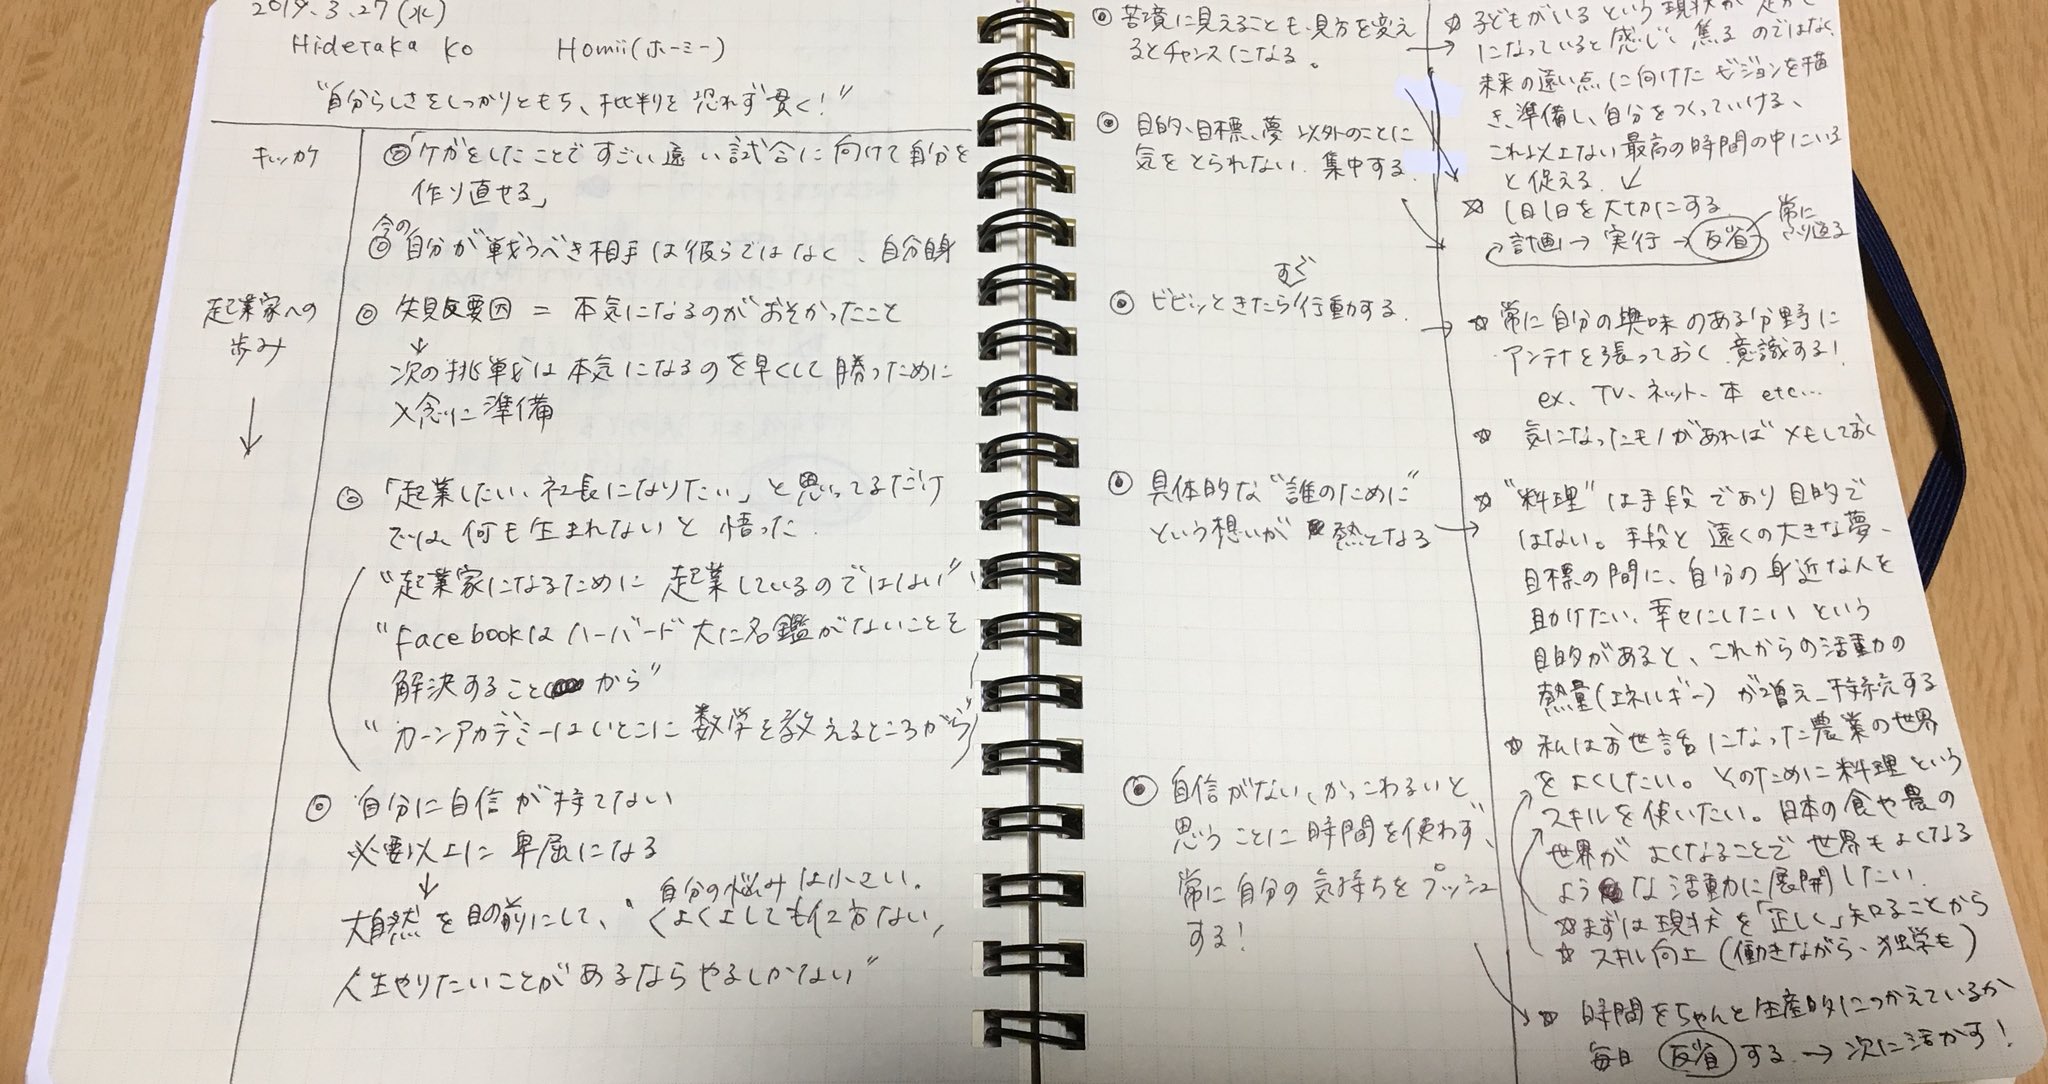 2019.3.27(水)
Hidetaka Ko Homii(ホーミー)
"自分らしさをしっかりともち、批判を恐れず貫く!"
キッカケ
◎「ケガをしたことですごい遠い試合に向けて自分を
作り直せる」
今の
◎自分が戦うべき相手は彼らではなく、自分自身
起業家への
歩み
↓
◎ 失敗要因 = 本気になるのがおそかったこと
↓
次の挑戦は本気になるのを早くして勝つために
入念に準備
◎「起業したい、社長になりたい」と思ってるだけ
では、何も生まれないと悟った.
"起業家になるために起業しているのでははい"
"facebookはハーバード大に名鑑がないことを
解決することから"
"カーンアカデミーはいとこに数学を教えるところから"
◎ 自分に自信が持てない
必要以上に卑屈になる
↓
自分の悩みは小さい。
大自然を目の前にして、"くよくよしても仕方ない,
人生やりたいことがあるならやるしかない"
◎ 苦境に見えることも、見方を変え
るとチャンスになる。
◎ 目的、目標、夢以外のことに
気をとられない. 集中する.
すぐ
◎ ビビッときたら行動する.
◎ 具体的な"誰のために"
という想いが熱となる
◎ 自信がない、かっこわるいと
思うことに時間を使わず、
常に自分の気持ちをプッシュ
する!
☆ 子どもがいるという現状が
になっていると感じ、焦るのではなく、
未来の遠い点に向けたビジョンを描
き、準備し、自分をつくっていける、
これ以上ない最高の時間の中にいる
と捉える. ↙
☆ 1日1日を大切にする
計画→実行→反省 常に
☆ 常に自分の興味のある分野に
アンテナを張っておく. 意識する!
ex、TV、ネット、本 etc...
☆ 気になったモノがあればメモしておく
☆ "料理"は手段であり目的で
はない。手段と遠くの大きな夢、
目標の間に、自分の身近な人を
助けたい、幸せにしたいという
目的があると、これからの活動の
熱量(エネルギー)が増え、持続する
☆ 私はお世話になった農業の世界
をよくしたい。そのために料理という
スキルを使いたい。日本の食や農の
世界がよくなることで世界もよくなる
ような活動に展開したい.
☆まずは現状を「正しく」知ることから
☆ スキル向上(働きながら、独学も)
☆ 時間をちゃんと生産的につかえているか
毎日 反省 する. → 次に活かす!